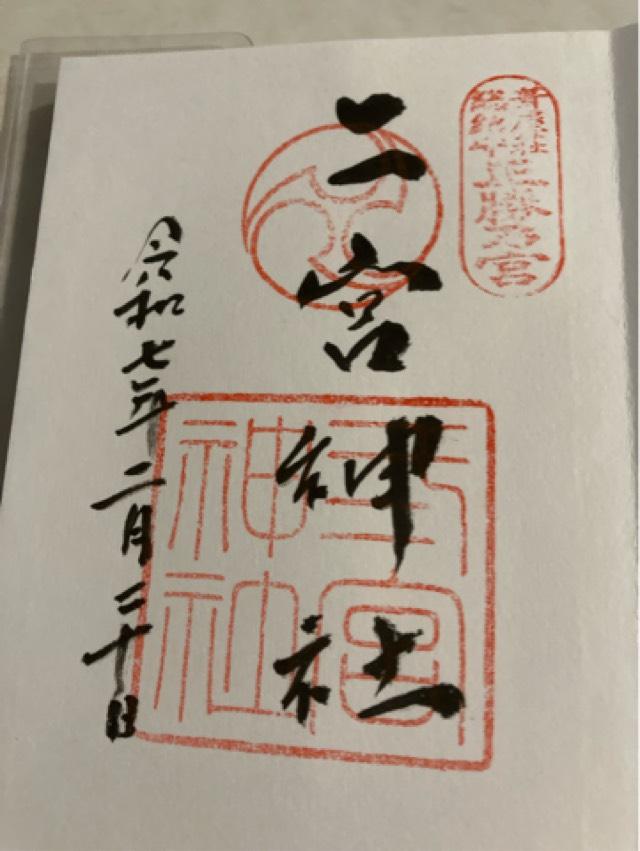 正勝乃宮
二宮神社
宮
神社
令和七年二月二十日